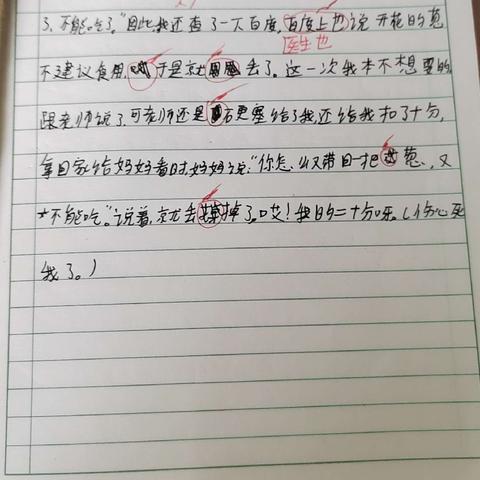 了，不能吃了。"因此我还查了一下百度，百度上也说 开花的葱
医生也
不建议食用，于是就去了。这一次我本不想要的，
跟老师说了，可老师还是硬给了我，还给我扣了十分，
拿回家给妈妈看时，妈妈说："你怎么又带回一把葱，又
不能吃。"说着，就去掉了。哎！我的二十分呀。（伤心死
我了。）